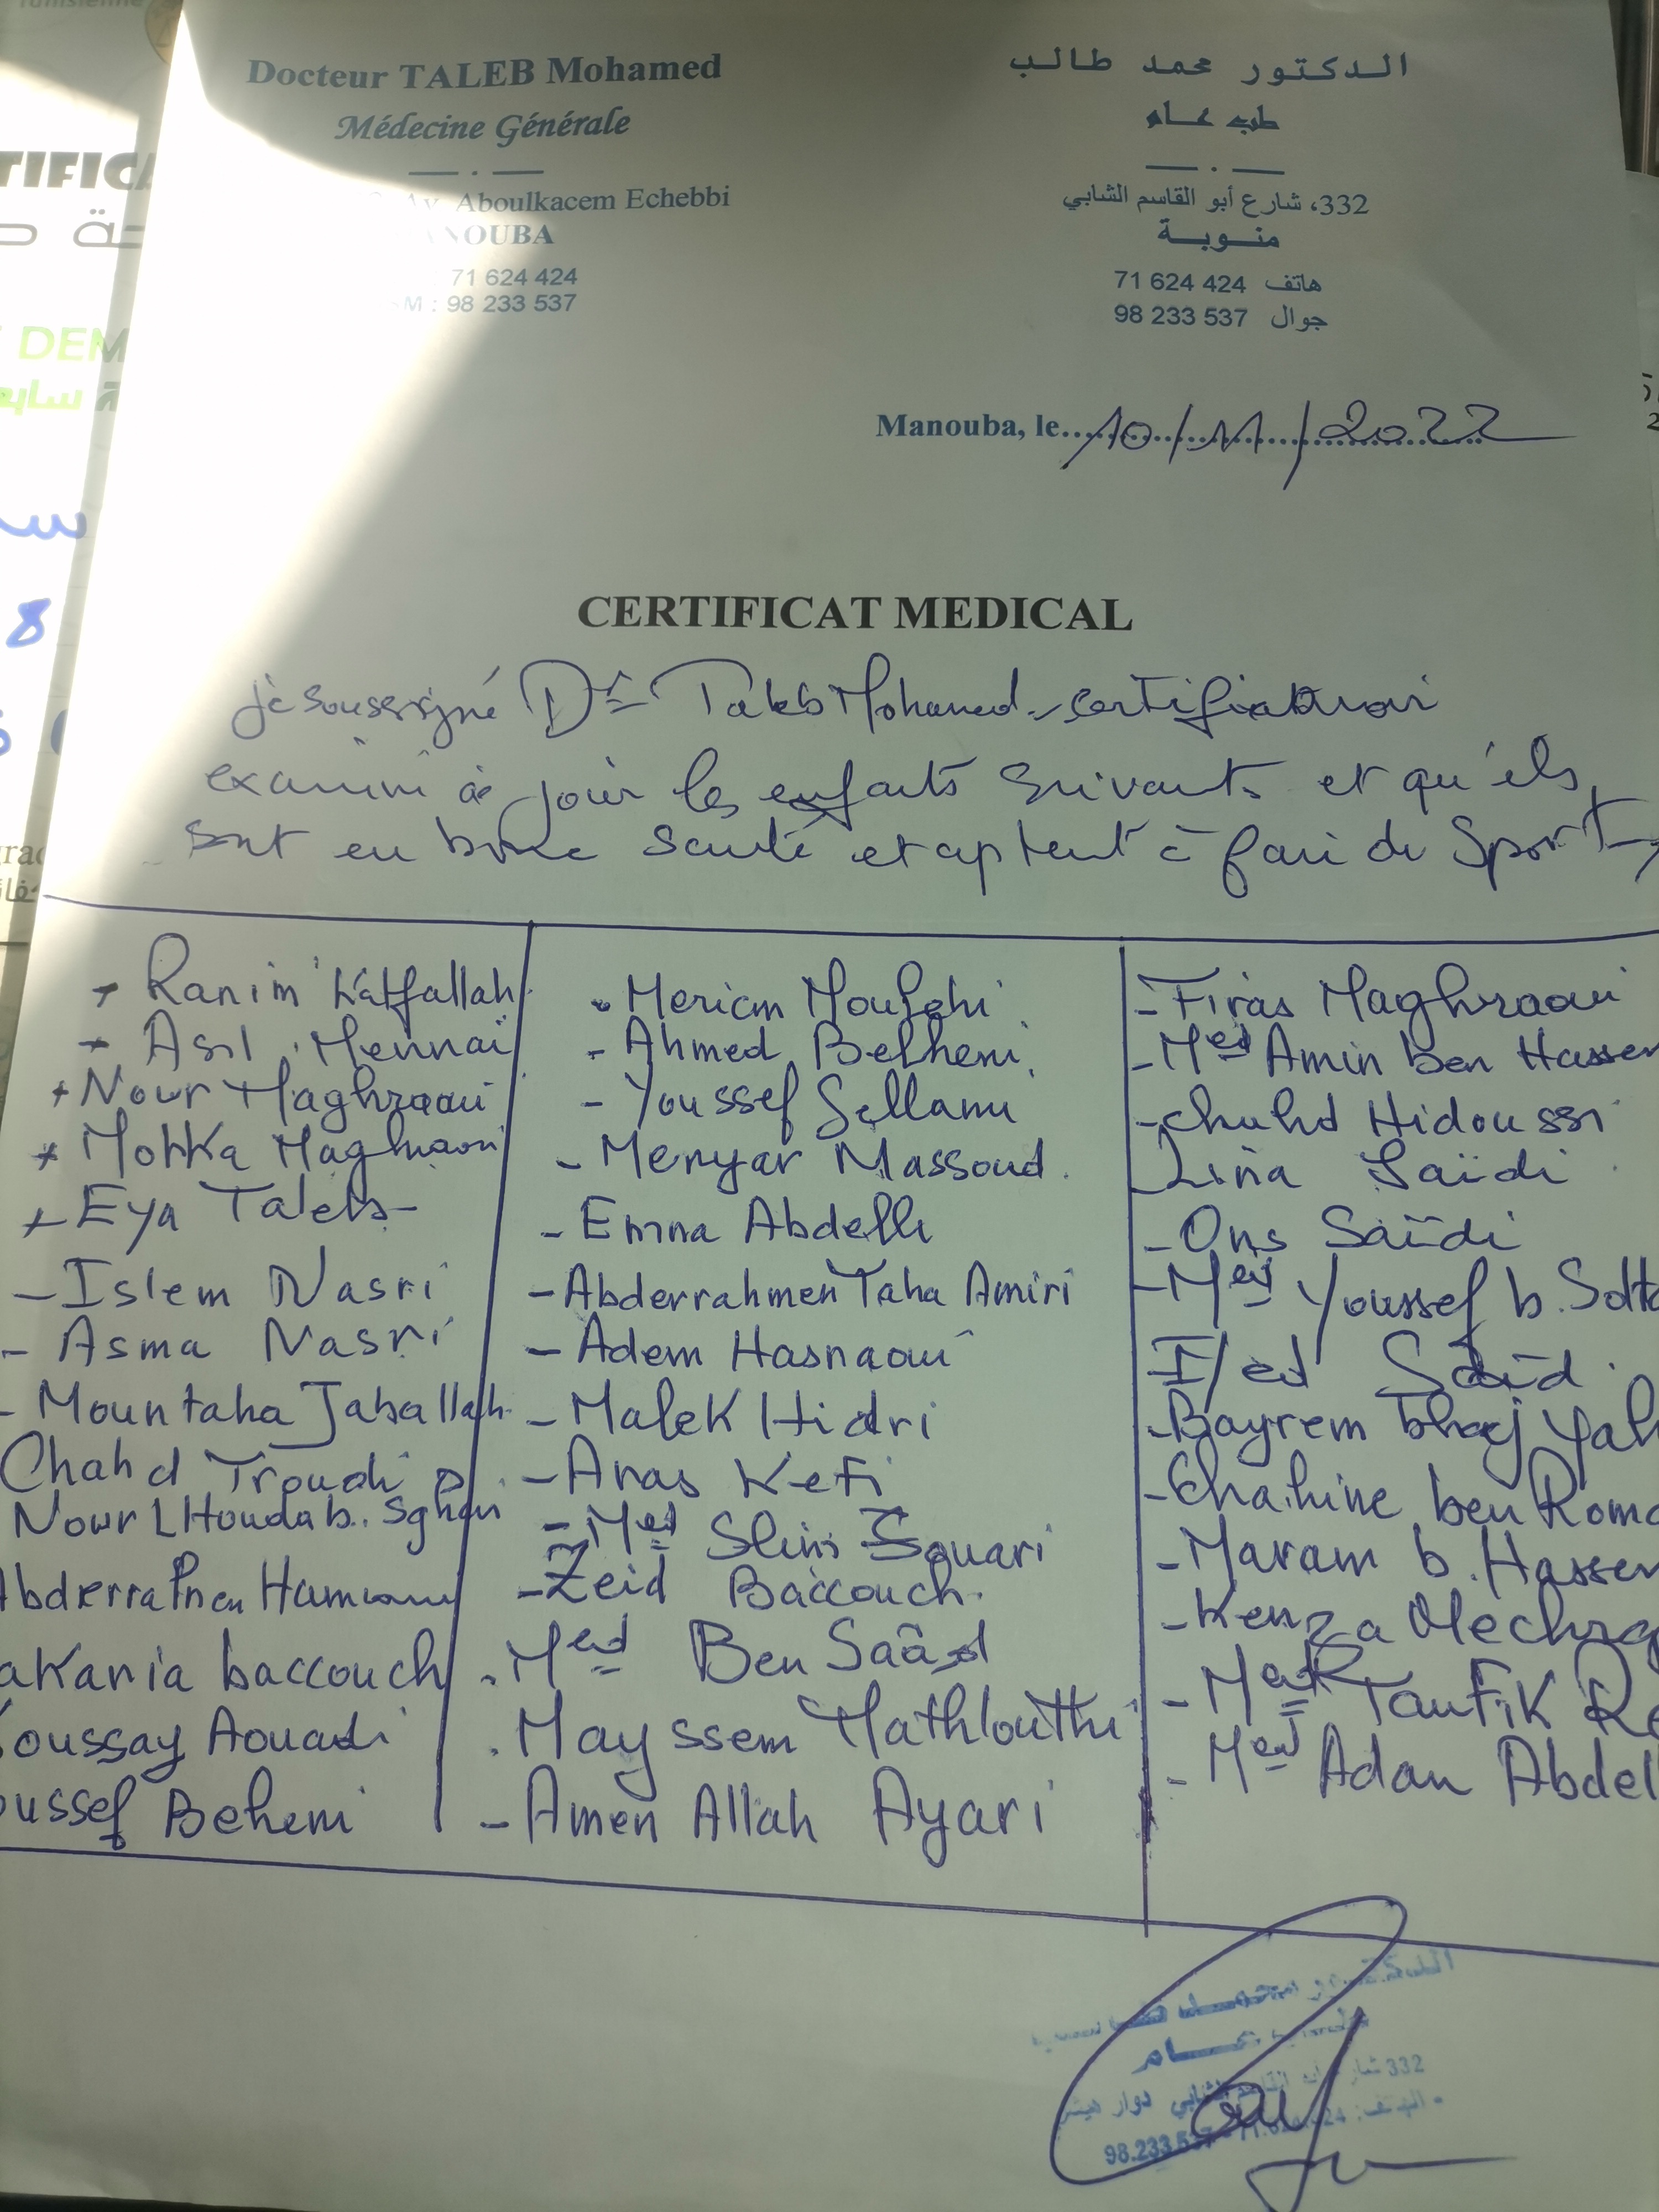 Docteur TALEB Mohamed
Médecine Générale
Av. Aboulkacem Echebbi
NOUBA
71 624 424
M : 98 233 537
الدكتور محمد طالب
طب عام
332، شارع أبو القاسم الشابي
منوبة
هاتف 71 624 424
جوال 98 233 537
Manouba, le 10/11/2022
CERTIFICAT MEDICAL
Je soussigné Dr Taleb Mohamed certifie avoir
examiné ce jour les enfants suivants et qu'ils
sont en bonne santé et aptent à faire du Sport
Ranim Katfallah
Asil Mennai
Nour Maghraoui
Mohka Maghraoui
Eya Taleb
- Islem Nasri
- Asma Nasri
- Mountaha Jaballah
Chahd Troudi
Nour L Houda b. Sghaier
Abderrahmen
akaria baccouch
oussay Aouadi
oussef Behemi
Meriam
- Ahmed Belhemi
- Youssef Sellami
- Menyar Massoud
- Emna Abdelli
- Abderrahmen Taha Amiri
- Adem Hasnaoui
- Malek Hidri
- Anas Kefi
- Med Slim Souari
- Zeid Baccouch
. Med Ben Saâd
. Mayssem Mathlouthi
- Amen Allah Ayari
- Firas Maghraoui
- Med Amin ben Hassen
- Chahd Hidoussi
- Lina Saïdi
- Ons Saïdi
- Med Youssef b. Solta
Iyed Saïd
- Bayrem bhaj Yah
- Chahine ben Roma
- Maram b. Hassen
- Kenza Mechrg
- Med Taufik Re
- Med Adam Abdel
332
98.233.537
TIFICA
DEM
8